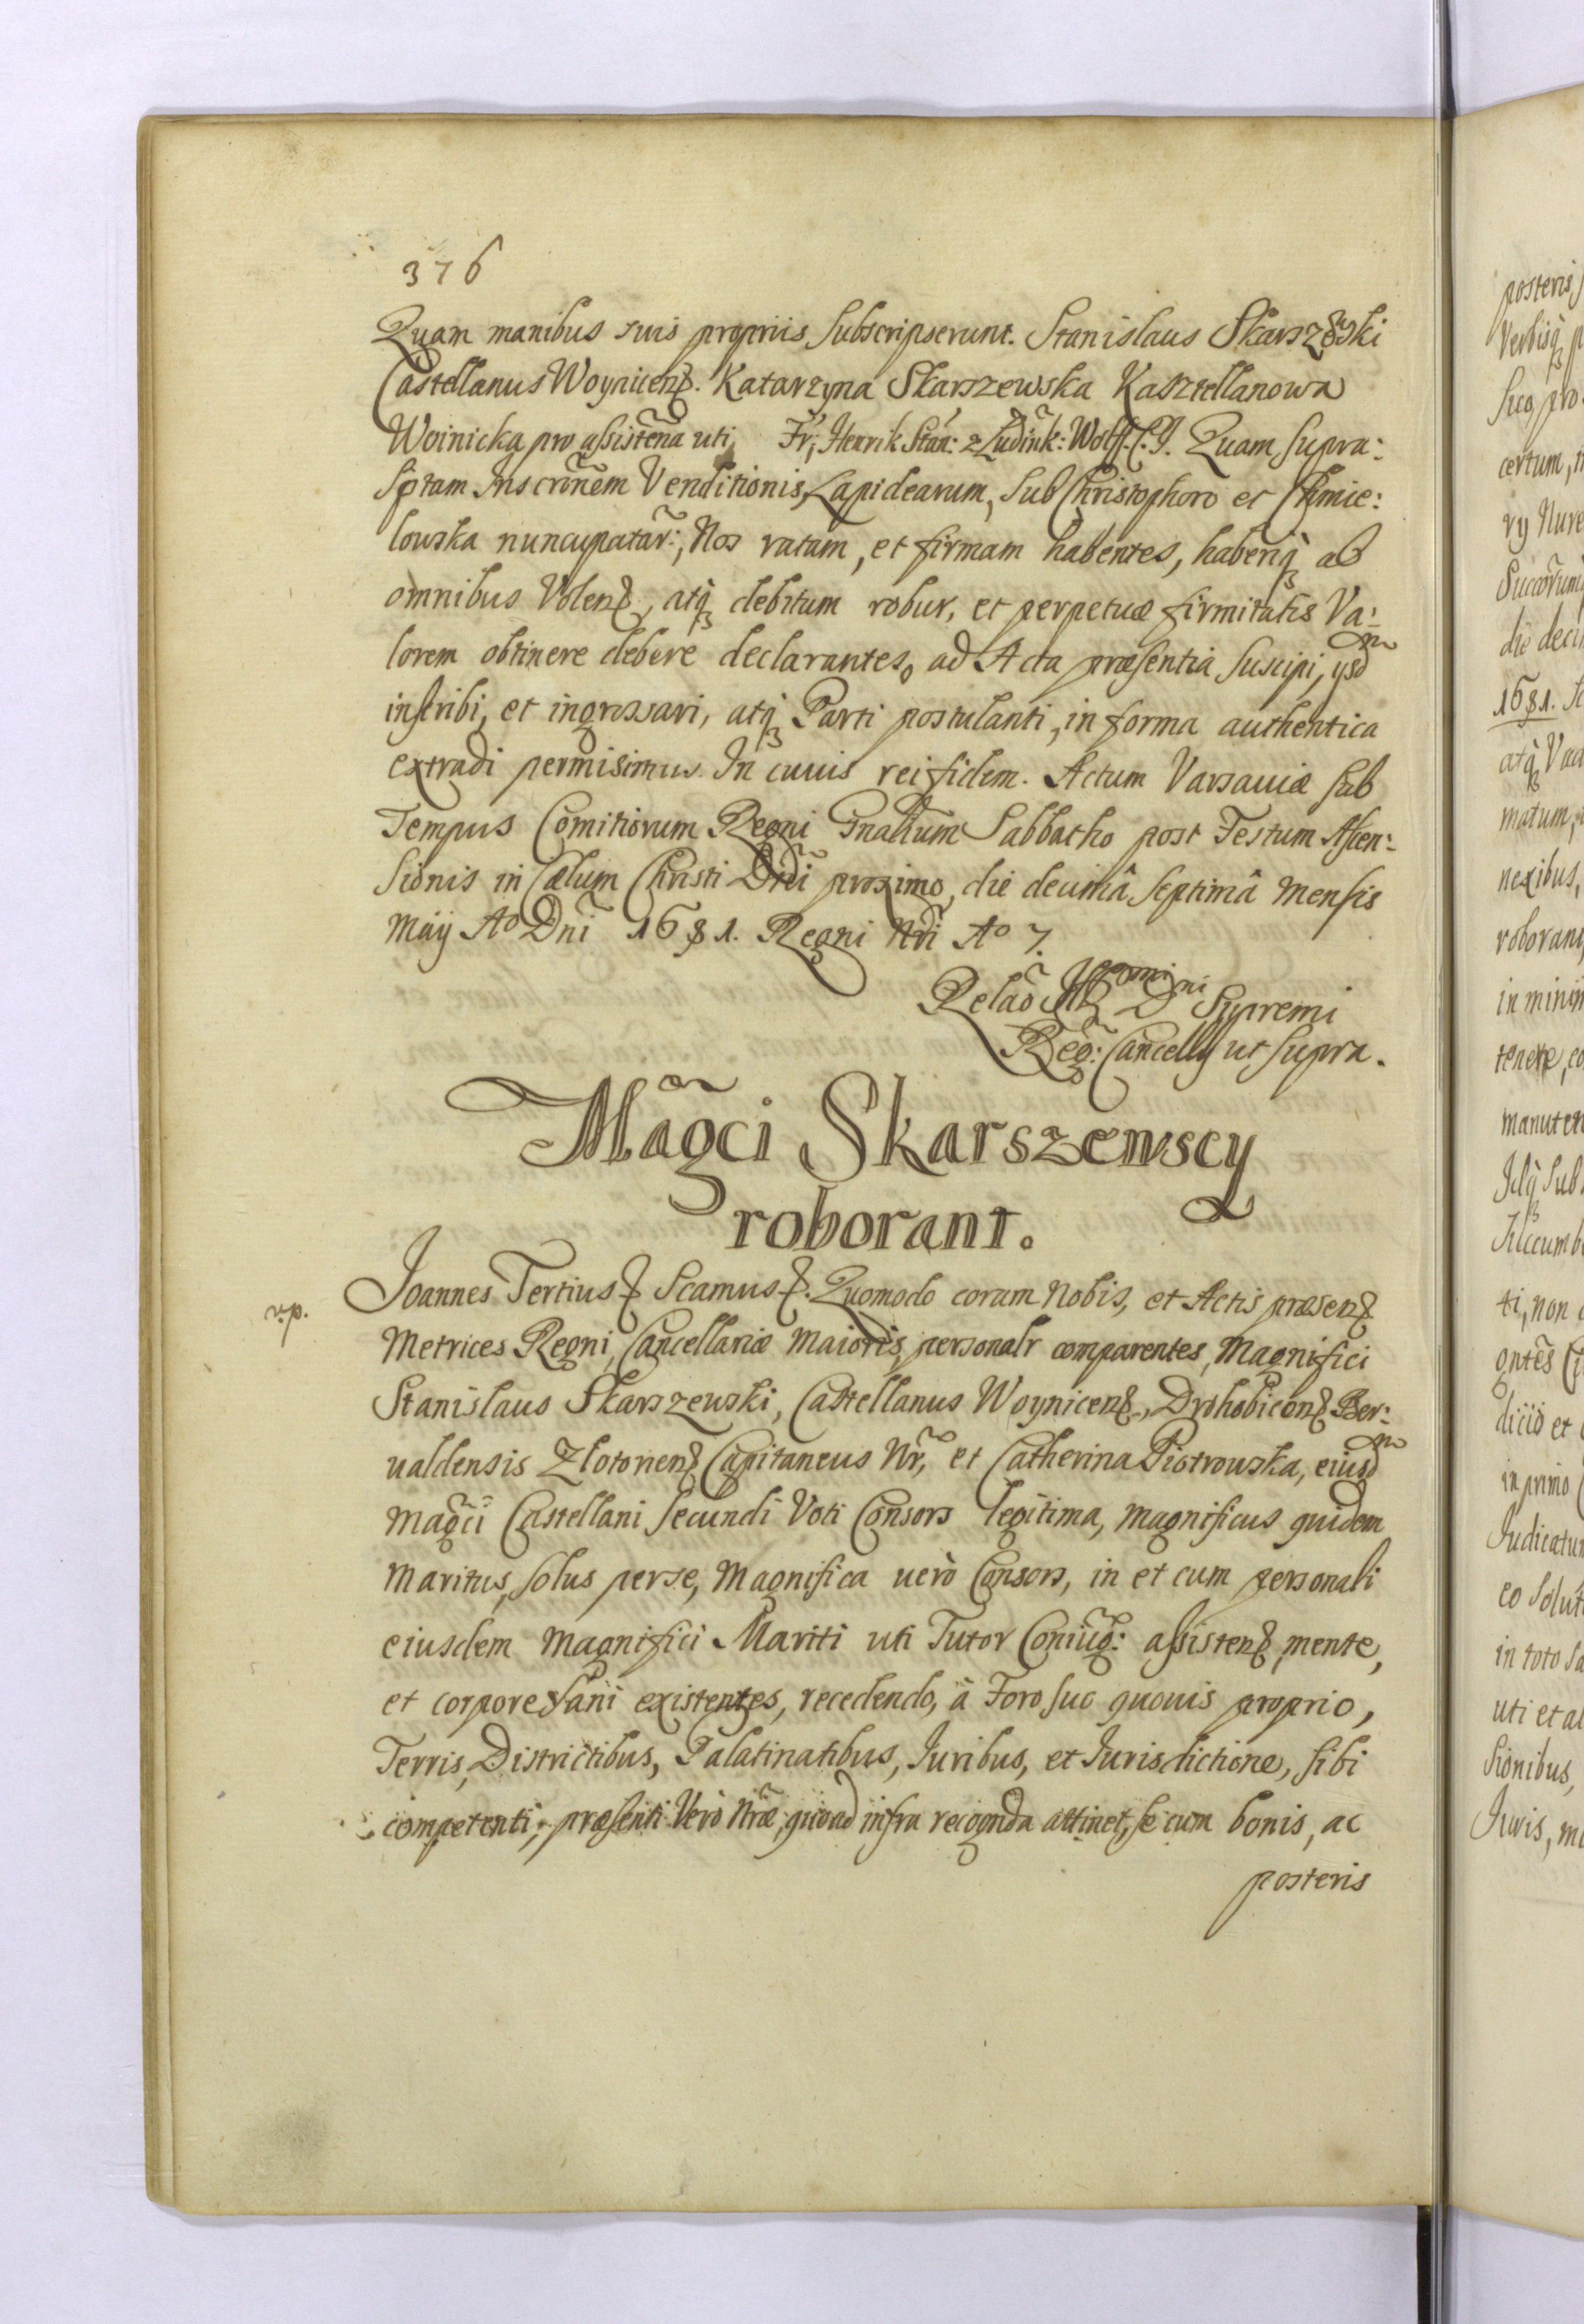 376
Quam manibus suis propriis subscripserunt. Stanislaus Skarszewski
Castellanus Woynicen. Katarzyna Skarszewska Kasztellanowa
Woinicka pro assistena uti Fr; Henrik Stan: z Ludink: Wolff. S. J. Quam supra:
sptam Inscrinem Venditionis, Lapidearum, sub Christophoro et Chmie:
lowska nuncupatar:, Nos ratam, et firmam habentes, haberiq ab
omnibus Volen, atq debitum robur, et perpetuæ firmitatis Va:
lorem obtinere debere declarantes, ad Acta præsentia suscipi, ysd
inscribi, et ingrossari, atq Parti postulanti, in forma authentica
extradi permisimus. In cuius rei fidem. Actum Varsaviæ sub
Tempus Comitiorum Regni Gnalium Sabbatho post Festum Ascen:
sionis in Cælum Christi Dni proximo, die decimâ septimâ Mensis
Maij Ao Dni 1681. Regni Nri Ao 7.
Relao Dni Supremi
Reg: Cancelly ut supra.
Magci Skarszewscy
roborant.
v.p.
Joannes Tertius Scamus. Quomodo coram Nobis, et Actis præsen
Metrices Regni, Cancellariæ Maioris, personalr comparentes, Magnifici
Stanislaus Skarszewski, Castellanus Woynicen, Drohobicen Ber:
ualdensis Zlotorien Capitaneus Nr, et Catherina Piotrowska, eiusd
Magci Castellani secundi Voti Consors legitima, Magnificus quidem
Maritus, solus perse, Magnifica uerò Consors, in et cum personali
eiusdem Magnifici Mariti uti Tutor Coniug: assisten, mente,
et corpore sani existentes, recedendo, à Foro suo quouis proprio,
Terris, Districtibus, Palatinatibus, Iuribus, et Iurisdictione, sibi
competenti, præsenti Verò Nræ, quoad infra recognda attinet, se cum bonis, ac
posteris